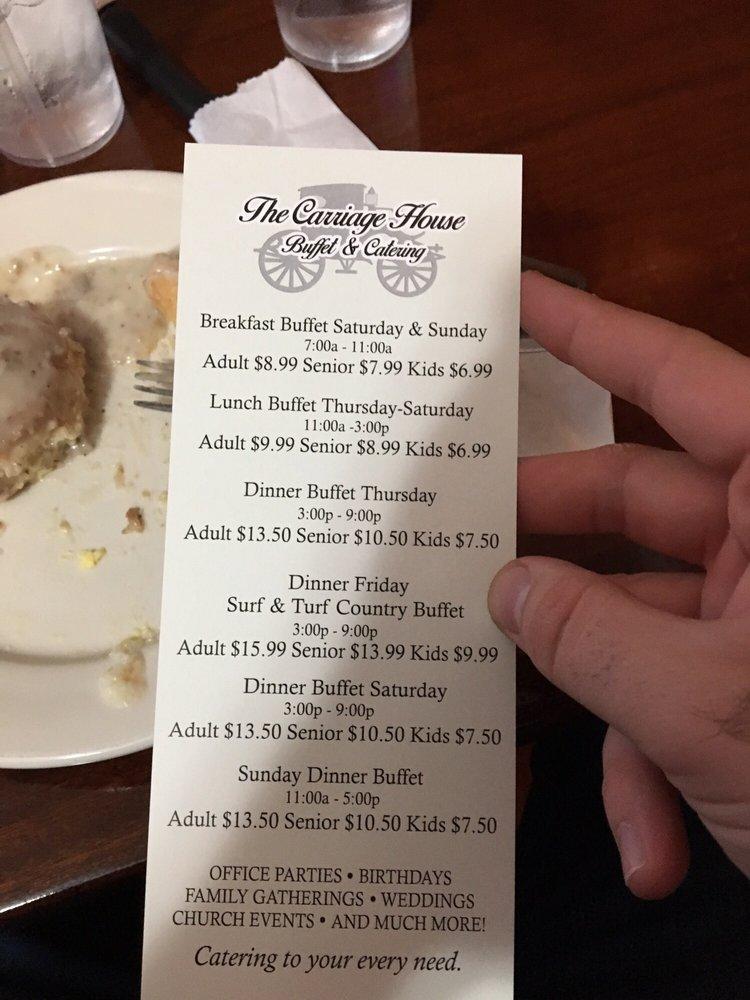 The Carriage House
Buffet & Catering
Breakfast Buffet Saturday & Sunday
7:00a - 11:00a
Adult $8.99 Senior $7.99 Kids $6.99
Lunch Buffet Thursday-Saturday
11:00a -3:00p
Adult $9.99 Senior $8.99 Kids $6.99
Dinner Buffet Thursday
3:00p - 9:00p
Adult $13.50 Senior $10.50 Kids $7.50
Dinner Friday
Surf & Turf Country Buffet
3:00p - 9:00p
Adult $15.99 Senior $13.99 Kids $9.99
Dinner Buffet Saturday
3:00p - 9:00p
Adult $13.50 Senior $10.50 Kids $7.50
Sunday Dinner Buffet
11:00a - 5:00p
Adult $13.50 Senior $10.50 Kids $7.50
OFFICE PARTIES • BIRTHDAYS
FAMILY GATHERINGS • WEDDINGS
CHURCH EVENTS • AND MUCH MORE!
Catering to your every need.